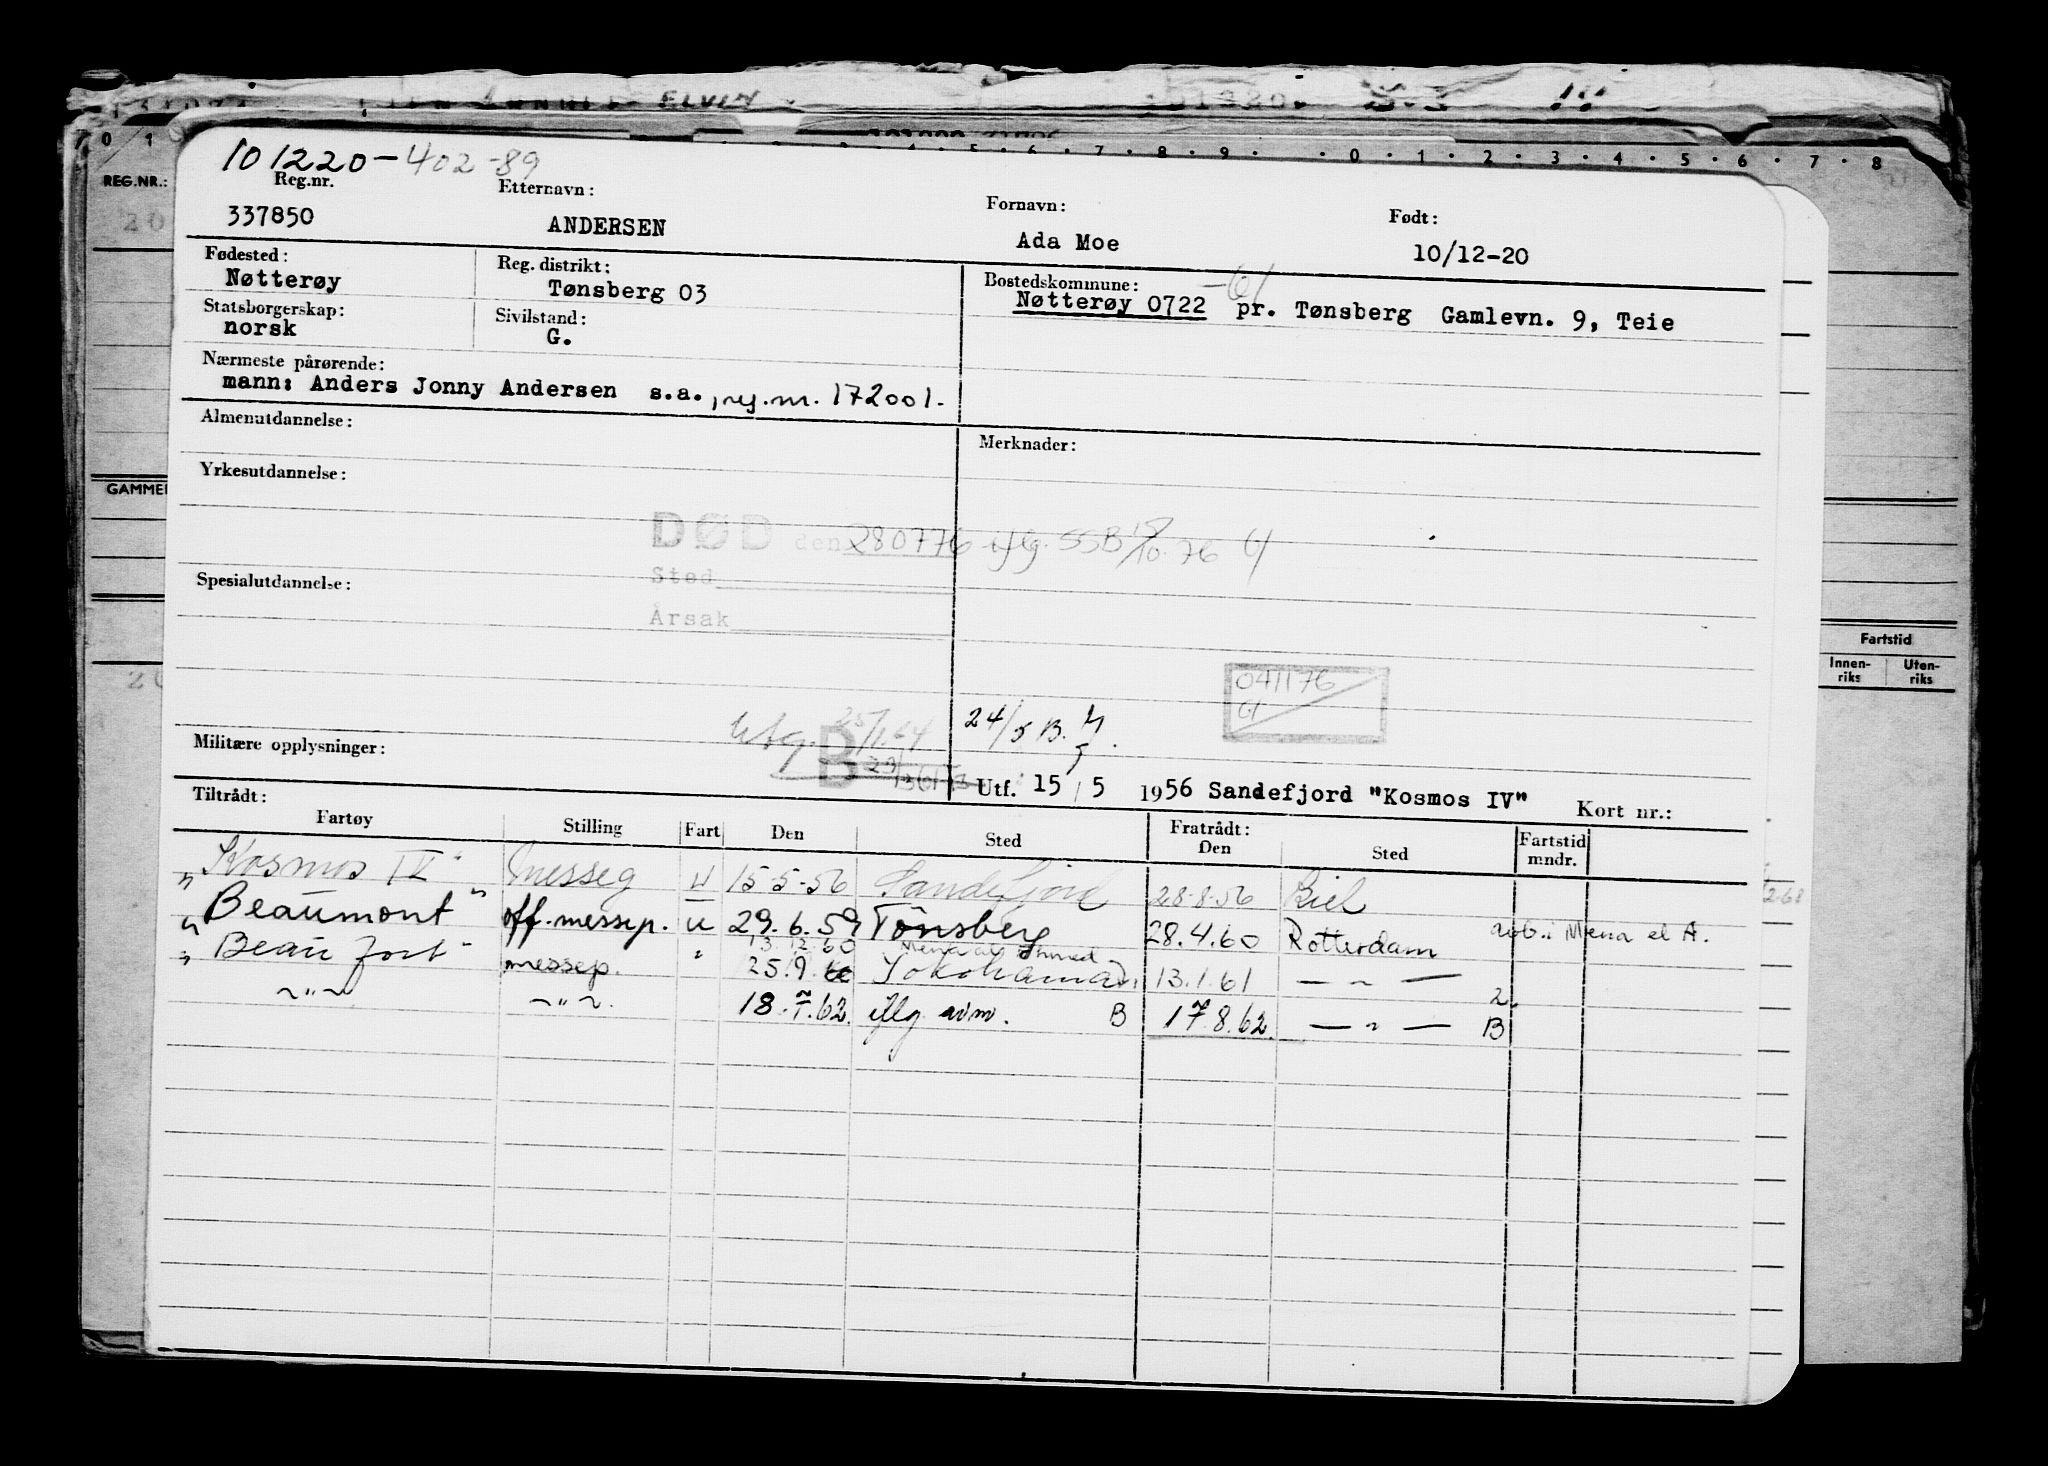 ELVIN
101220-402-89
REG.NR.:
Reg.nr. Etternavn: Fornavn: Født:
337850 ANDERSEN Ada Moe 10/12-20
Fødested: Reg. distrikt: Bostedskommune:
Nøtterøy Tønsberg 03 Nøtterøy 0722 -61 pr. Tønsberg Gamlevn. 9, Teie
Statsborgerskap: Sivilstand:
norsk G.
Nærmeste pårørende:
mann: Anders Jonny Andersen s.a., reg.nr. 172001.
Almenutdannelse: Merknader:
Yrkesutdannelse:
GAMMEL
DØD den 280776 iflg. SSB 15/10.76
Sted
Spesialutdannelse:
Årsak
Fartstid
Innen-riks Uten-riks
041176
24/5 B.
Utg. 25/1.64
B
Militære opplysninger:
Utf. 15/5 1956 Sandefjord "Kosmos IV" Kort nr.:
Tiltrådt: Fratrådt:
Fartøy Stilling Fart Den Sted Den Sted Fartstid mndr.
"Kosmos IV" Messeg U 15-5-56 Sandefjord 28-8-56 Kiel
"Beaumont" off.messep. u 29.6.59 Tønsberg 28.4.60 Rotterdam avb.: Mena el A.
13.12.60 Mena al Ahmed
"Beau fort" messep. " 25.9. Yokohama 13.1.61 — " —
~"~ ~"~. 18.7.62. iflg avm. B 17.8.62. — " — B